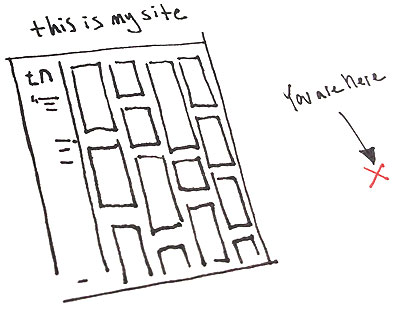 this is my site
tn
You are here